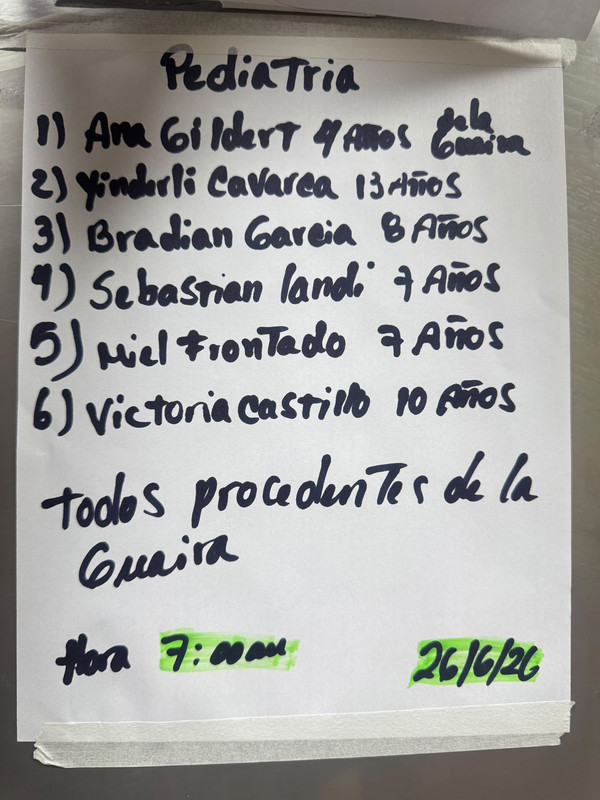 Pediatria
1) Ana Gildert 4 Años de la Guaira
2) Yinderli Cavarca 13 Años
3) Bradian Garcia 8 Años
4) Sebastian landi 7 Años
5) Miel Frontado 7 Años
6) Victoria Castillo 10 Años
todos procedentes de la
Guaira
Hora 7:00 am 26/6/26